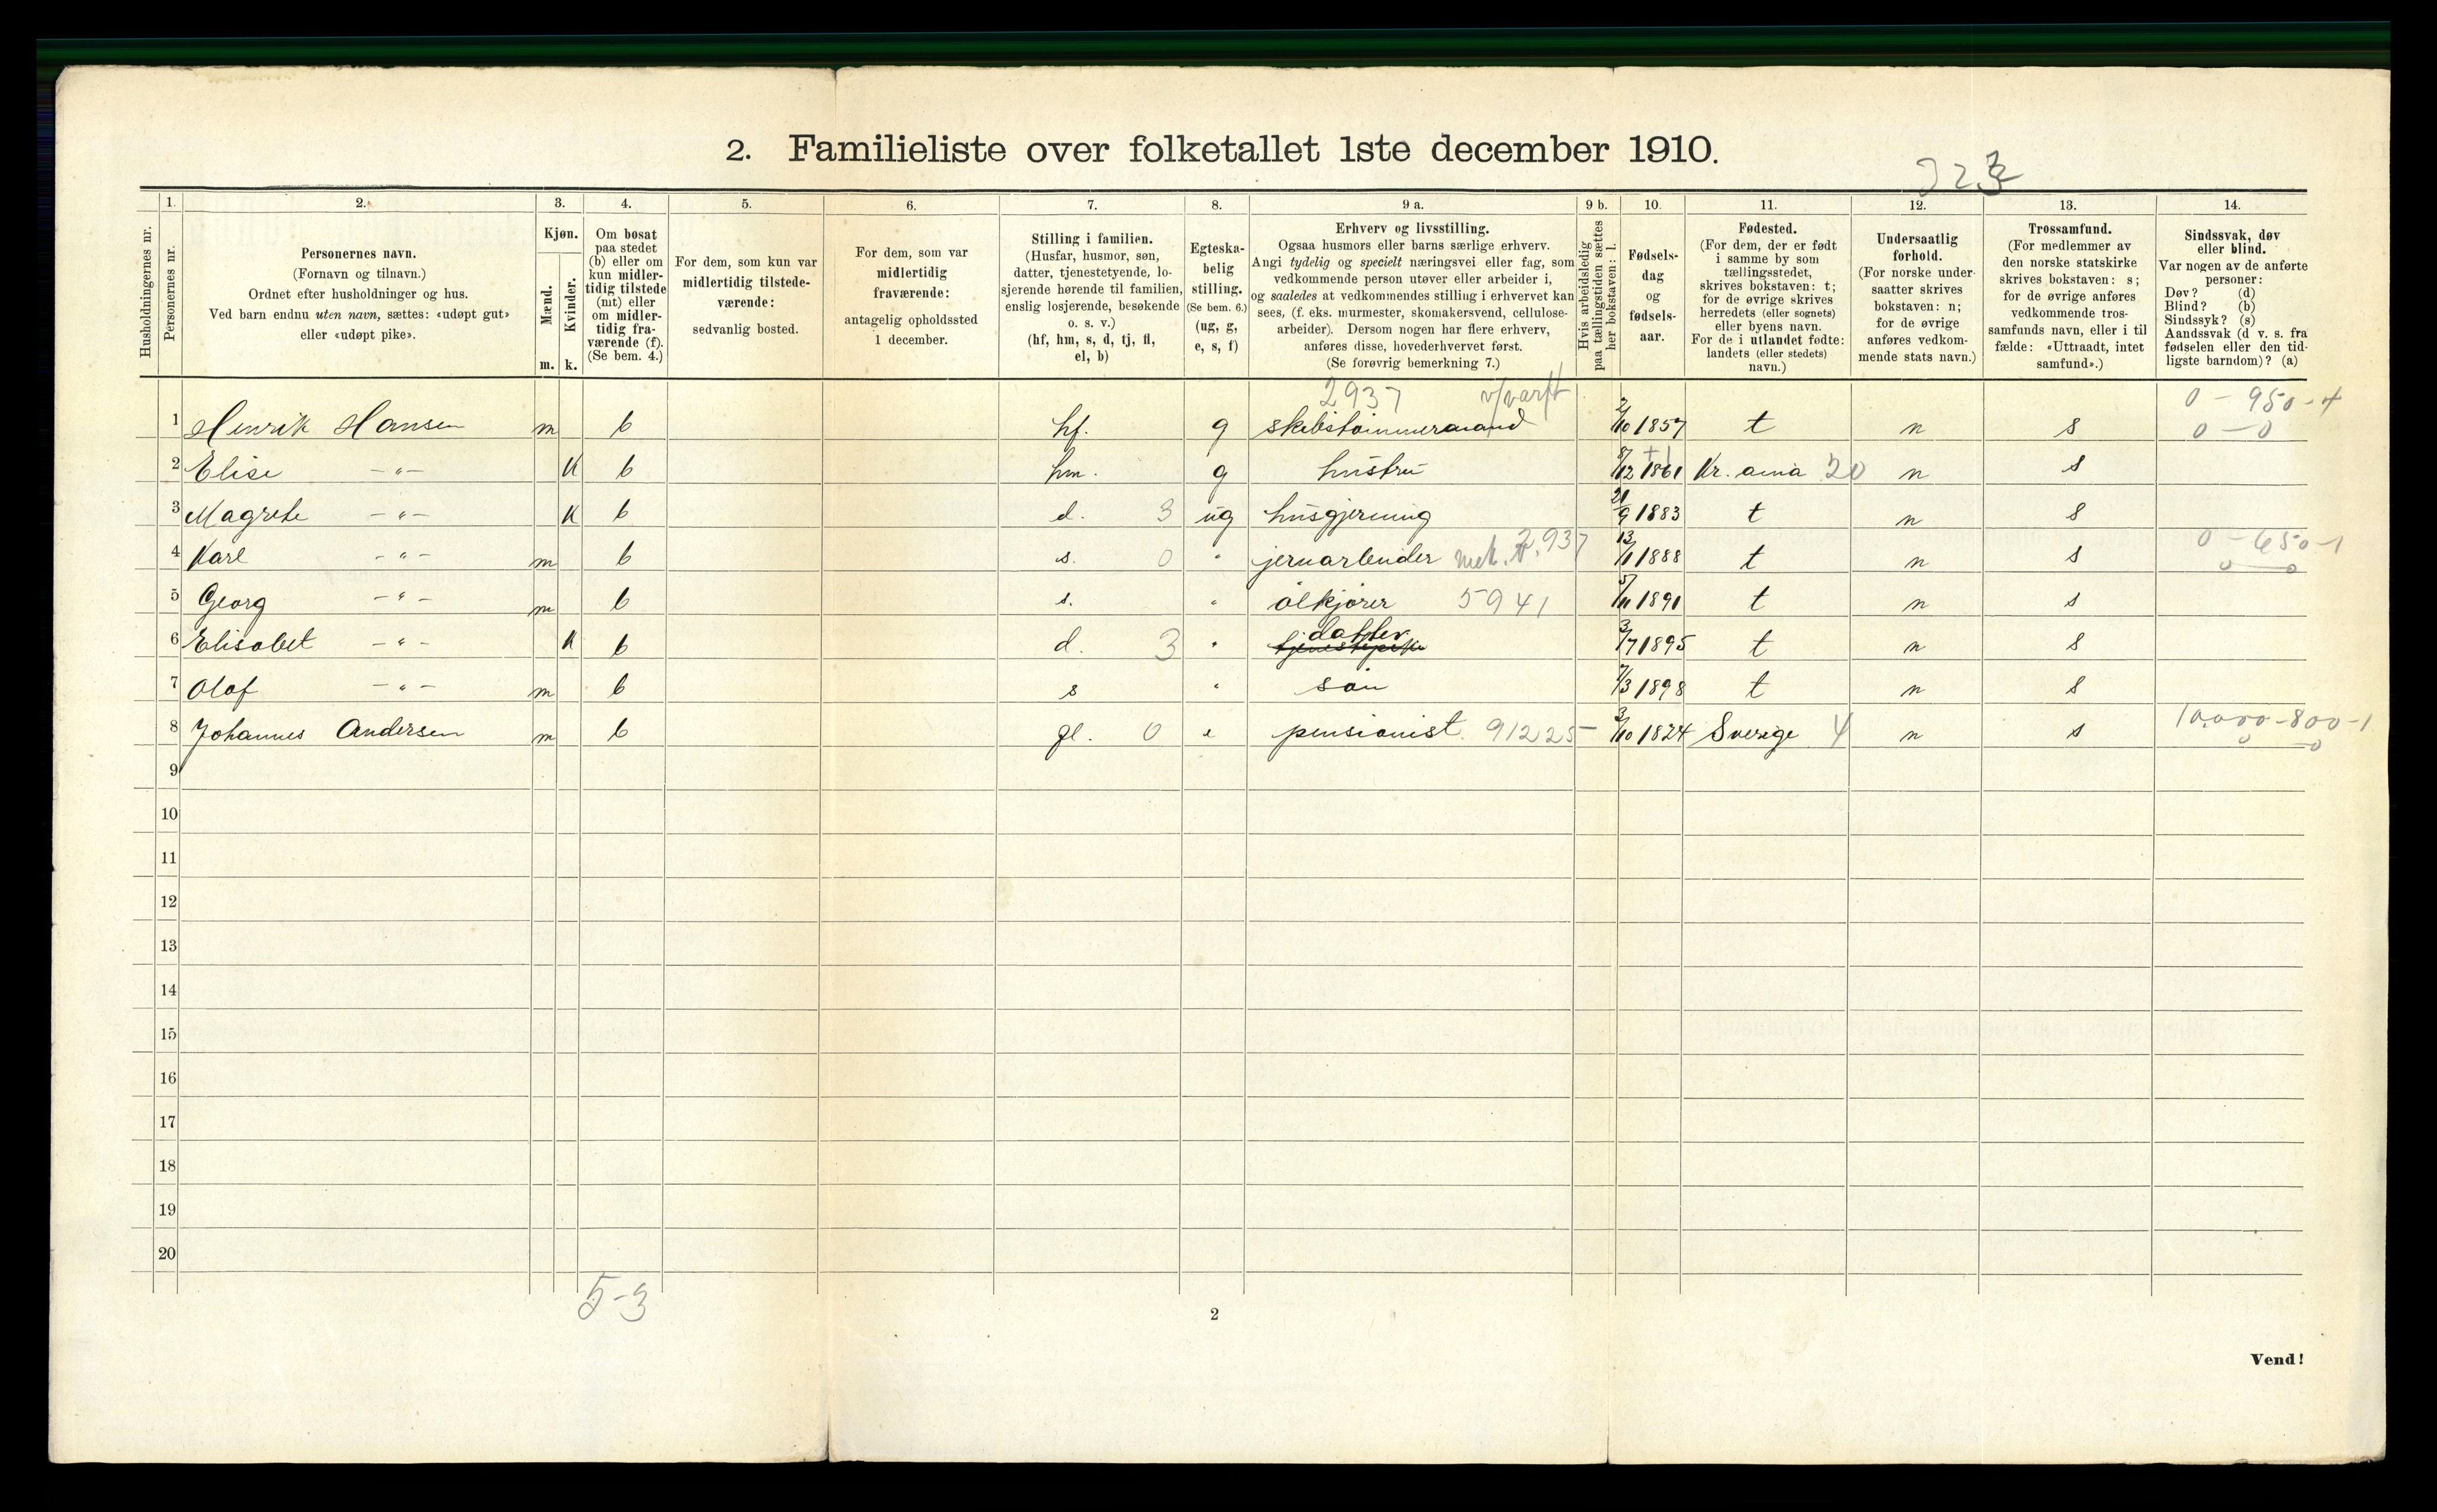 2. Familieliste over folketallet 1ste december 1910.
1. 2. 3. 4. 5. 6. 7. 8. 9 a. 9 b. 10. 11. 12. 13. 14.
Husholdningernes nr.
Personernes nr.
Personernes navn.
(Fornavn og tilnavn.)
Ordnet efter husholdninger og hus.
Ved barn endnu uten navn, sættes: «udøpt gut»
eller «udøpt pike».
Kjøn.
Mænd.
m.
Kvinder.
k.
Om bosat
paa stedet
(b) eller om
kun midler-
tidig tilstede
(mt) eller
om midler-
tidig fra-
værende (f).
(Se bem. 4.)
For dem, som kun var
midlertidig tilstede-
værende:
sedvanlig bosted.
For dem, som var
midlertidig
fraværende:
antagelig opholdssted
1 december.
Stilling i familien.
(Husfar, husmor, søn,
datter, tjenestetyende, lo-
sjerende hørende til familien,
enslig losjerende, besøkende
o. s. v.)
(hf, hm, s, d, tj, fl,
el, b)
Egteska-
belig
stilling.
(Se bem. 6.)
(ug, g,
e, s, f)
Erhverv og livsstilling.
Ogsaa husmors eller barns særlige erhverv.
Angi tydelig og specielt næringsvei eller fag, som
vedkommende person utøver eller arbeider i,
og saaledes at vedkommendes stilling i erhvervet kan
sees, (f. eks. murmester, skomakersvend, cellulose-
arbeider). Dersom nogen har flere erhverv,
anføres disse, hovederhvervet først.
(Se forøvrig bemerkning 7.)
Hvis arbeidsledig
paa tællingstiden sættes
her bokstaven: l.
Fødsels-
dag
og
fødsels-
aar.
Fødested.
(For dem, der er født
i samme by som
tællingsstedet,
skrives bokstaven: t;
for de øvrige skrives
herredets (eller sognets)
eller byens navn.
For de i utlandet fødte:
landets (eller stedets)
navn.)
Undersaatlig
forhold.
(For norske under-
saatter skrives
bokstaven: n;
for de øvrige
anføres vedkom-
mende stats navn.)
Trossamfund.
(For medlemmer av
den norske statskirke
skrives bokstaven: s;
for de øvrige anføres
vedkommende tros-
samfunds navn, eller i til
fælde: «Uttraadt, intet
samfund».)
Sindssvak, døv
eller blind.
Var nogen av de anførte
personer:
Døv? (d)
Blind? (b)
Sindssyk? (s)
Aandssvak (d v. s. fra
fødselen eller den tid-
ligste barndom)? (a)
2937 v/varft 0 - 950 - 4
1 Henrik Hansen m b hf. g skibstømmermand 2/10 1857 t n s 0 - 0
2 Elise -"- k b hm. g hustru 8/12 1861 Kr. ania 20 n s
3 Magrete -"- k b d. 3 ug husgjerning 21/9 1883 t n s
4 Karl -"- m b s. 0 " jernarbeider mek. v. 2937 13/1 1888 t n s 0 - 650 - 1
0 - 0
5 Georg -"- m b s. " ølkjører 5941 5/11 1891 t n s
6 Elisabet -"- k b d. 3 " tjenestepike datter 3/7 1895 t n s
7 Olaf -"- m b s " søn 7/3 1898 t n s
8 Johannes Andersen m b fl. 0 e pensionist. 91225 3/10 1824 Sverige 4 n s 10,000 - 800 - 1
0 - 0
9
10
11
12
13
14
15
16
17
18
19
20
5-3
2
Vend!